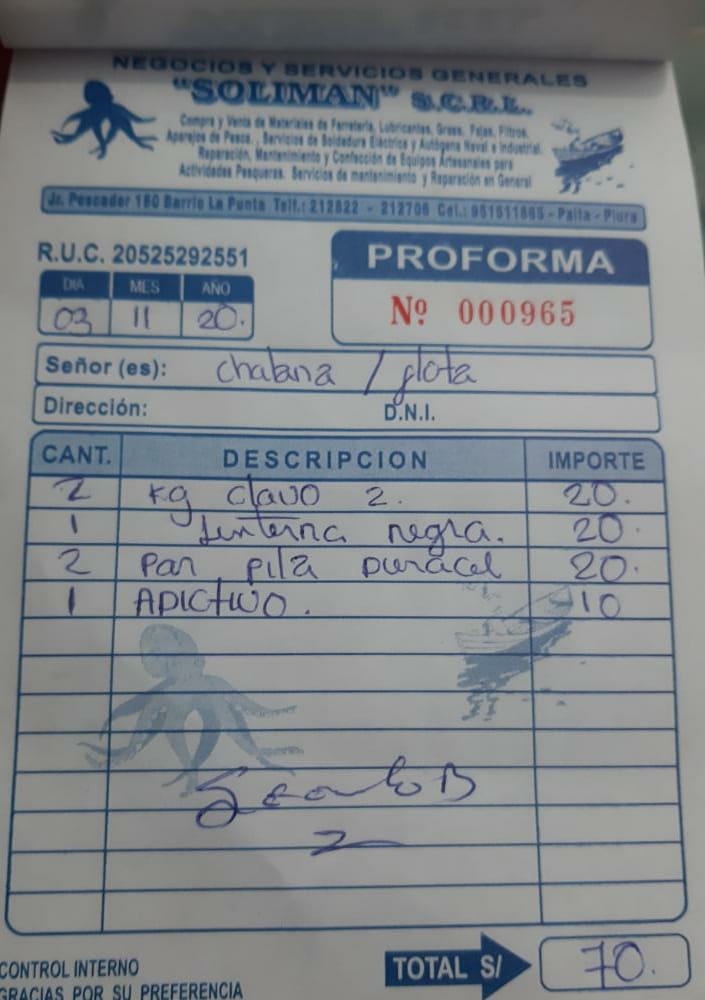 NEGOCIOS Y SERVICIOS GENERALES
"SOLIMAN" S.C.R.L.
Compra y Venta de Materiales de Ferretería, Lubricantes, Grasa, Fajas, Filtros,
Aparejos de Pesca, , Servicios de Soldadura Eléctrica y Autógena Naval e Industrial.
Reparación, Mantenimiento y Confección de Equipos Artesanales para
Actividades Pesqueras. Servicios de mantenimiento y Reparación en General
Jr. Pescador 180 Barrio La Punta Telf.: 212822 - 212706 Cel.: - Paita - Piura
R.U.C. 20525292551
PROFORMA
DIA MES AÑO
03 11 20.
Nº 000965
Señor (es): chalana / flota
Dirección: D.N.I.
CANT. DESCRIPCION IMPORTE
2 kg clavo 2. 20.
1 linterna negra. 20.
2 Par pila Duracel 20.
1 ADICTIVO. 10
CONTROL INTERNO
GRACIAS POR SU PREFERENCIA
TOTAL S/ 70.